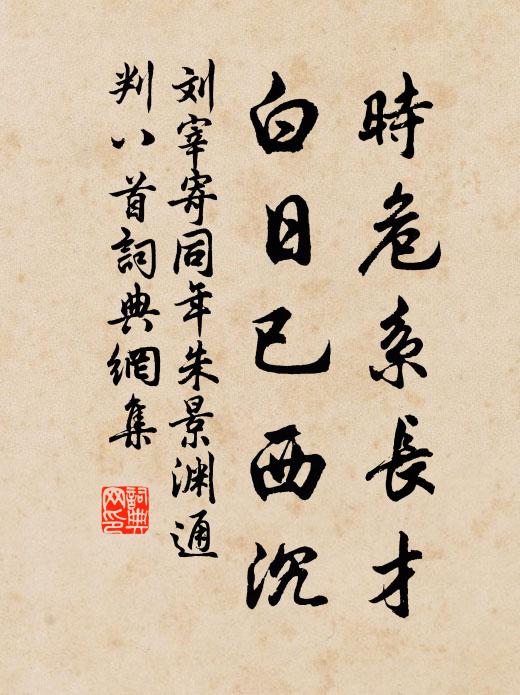 時危系長才
白日已西沉
刘宰寄同年朱景渊通
判八首詞典網集
詞典网印